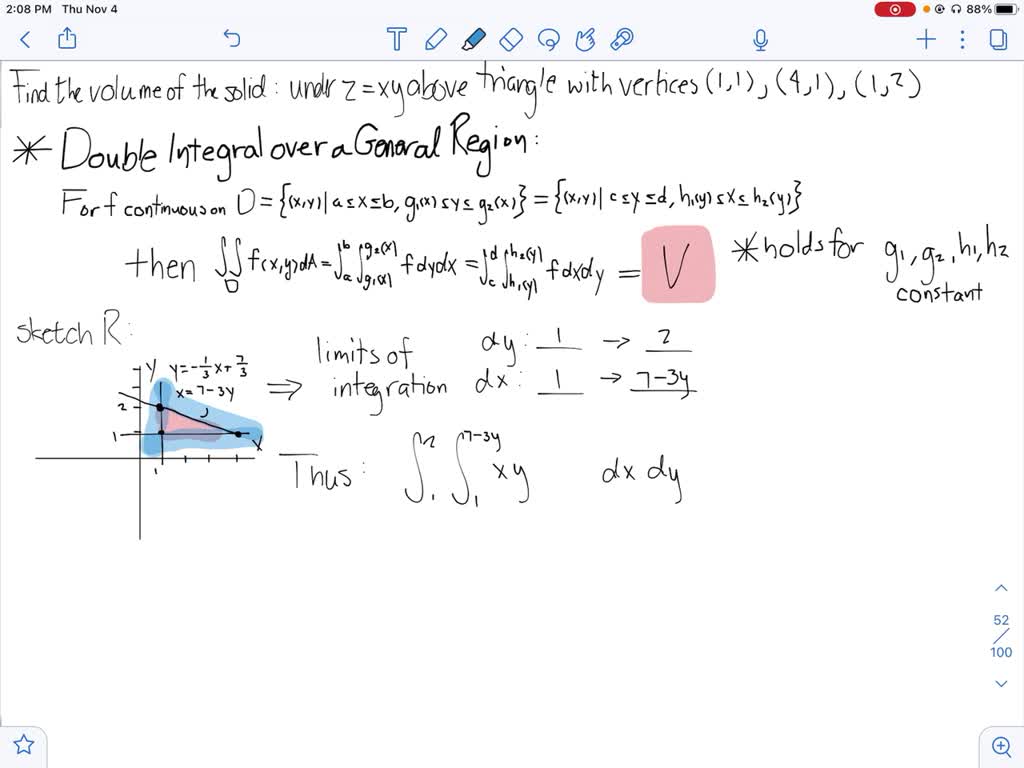 2:08 PM Thu Nov 4 88%
Find the volume of the solid: under z=xy above triangle with vertices (1,1), (4,1), (1,2)
* Double Integral over a General Region:
For f continuous on D = {(x,y) | a ≤ x ≤ b, g₁(x) ≤ y ≤ g₂(x)} = {(x,y) | c ≤ y ≤ d, h₁(y) ≤ x ≤ h₂(y)}
then ∬_D f(x,y)dA = ∫_a^b ∫_{g₁(x)}^{g₂(x)} f dy dx = ∫_c^d ∫_{h₁(y)}^{h₂(y)} f dx dy = V
* holds for g₁, g₂, h₁, h₂
constant
sketch R:
y
y = -1/3 x + 7/3
x = 7-3y
2
1
x
1
⇒ limits of integration
dy: 1 → 2
dx: 1 → 7-3y
Thus: ∫_1^2 ∫_1^{7-3y} xy dx dy
52
/
100